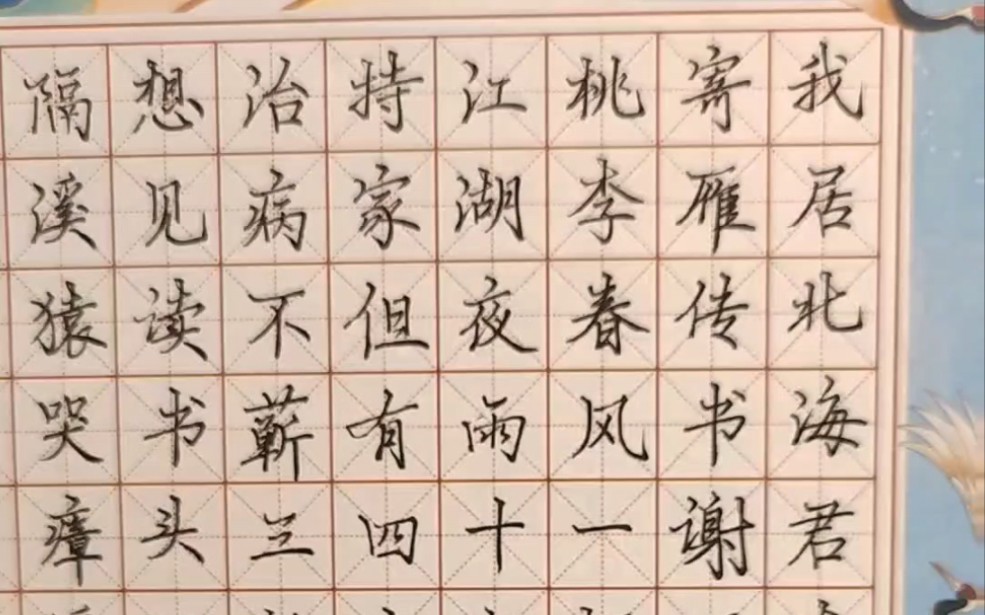 我居北海君
寄雁传书谢
桃李春风一
江湖夜雨十
持家但有四
治病不蕲三
想见读书头
隔溪猿哭瘴